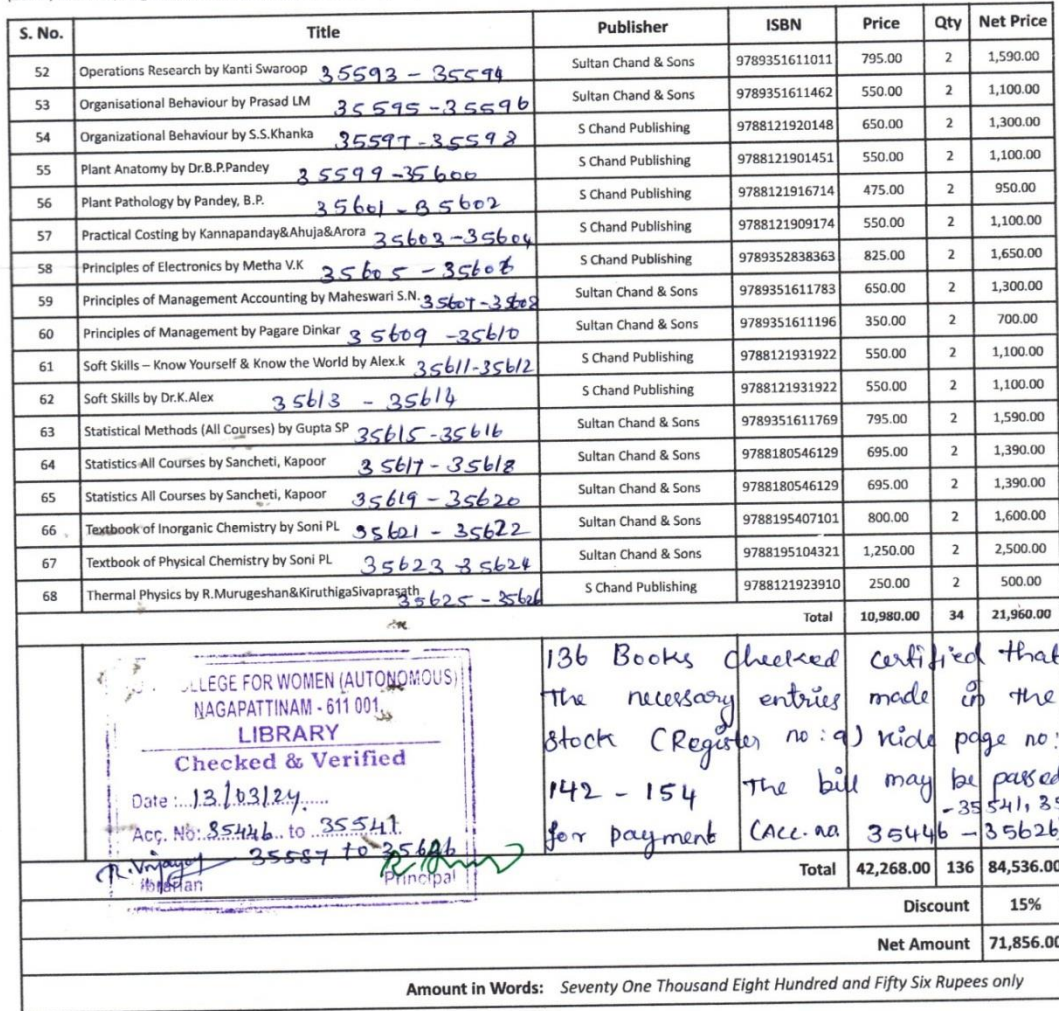 S. No. Title Publisher ISBN Price Qty Net Price
52 Operations Research by Kanti Swaroop 35593 - 35594 Sultan Chand & Sons 9789351611011 795.00 2 1,590.00
53 Organisational Behaviour by Prasad LM 35595 - 35596 Sultan Chand & Sons 9789351611462 550.00 2 1,100.00
54 Organizational Behaviour by S.S.Khanka 35597 - 35598 S Chand Publishing 9788121920148 650.00 2 1,300.00
55 Plant Anatomy by Dr.B.P.Pandey 35599 - 35600 S Chand Publishing 9788121901451 550.00 2 1,100.00
56 Plant Pathology by Pandey, B.P. 35601 - 35602 S Chand Publishing 9788121916714 475.00 2 950.00
57 Practical Costing by Kannapanday&Ahuja&Arora 35603 - 35604 S Chand Publishing 9788121909174 550.00 2 1,100.00
58 Principles of Electronics by Metha V.K 35605 - 35606 S Chand Publishing 9789352838363 825.00 2 1,650.00
59 Principles of Management Accounting by Maheswari S.N. 35607 - 35608 Sultan Chand & Sons 9789351611783 650.00 2 1,300.00
60 Principles of Management by Pagare Dinkar 35609 - 35610 Sultan Chand & Sons 9789351611196 350.00 2 700.00
61 Soft Skills – Know Yourself & Know the World by Alex.k 35611 - 35612 S Chand Publishing 9788121931922 550.00 2 1,100.00
62 Soft Skills by Dr.K.Alex 35613 - 35614 S Chand Publishing 9788121931922 550.00 2 1,100.00
63 Statistical Methods (All Courses) by Gupta SP 35615 - 35616 Sultan Chand & Sons 9789351611769 795.00 2 1,590.00
64 Statistics All Courses by Sancheti, Kapoor 35617 - 35618 Sultan Chand & Sons 9788180546129 695.00 2 1,390.00
65 Statistics All Courses by Sancheti, Kapoor 35619 - 35620 Sultan Chand & Sons 9788180546129 695.00 2 1,390.00
66 Textbook of Inorganic Chemistry by Soni PL 35621 - 35622 Sultan Chand & Sons 9788195407101 800.00 2 1,600.00
67 Textbook of Physical Chemistry by Soni PL 35623 - 35624 Sultan Chand & Sons 9788195104321 1,250.00 2 2,500.00
68 Thermal Physics by R.Murugeshan&KiruthigaSivaprasath 35625 - 35626 S Chand Publishing 9788121923910 250.00 2 500.00
Total 10,980.00 34 21,960.00
LLEGE FOR WOMEN (AUTONOMOUS)
NAGAPATTINAM - 611 001.
LIBRARY
Checked & Verified
Date : 13/03/24
Acc. No: 35446 to 35541
35587 to 35626
Principal
136 Books checked certified that
the necessary entries made in the
stock (Register no: 9) vide page no:
142 - 154 The bill may be passed
- 35541, 35
for payment (Acc. no 35446 - 35626
Total 42,268.00 136 84,536.00
Discount 15%
Net Amount 71,856.00
Amount in Words: Seventy One Thousand Eight Hundred and Fifty Six Rupees only